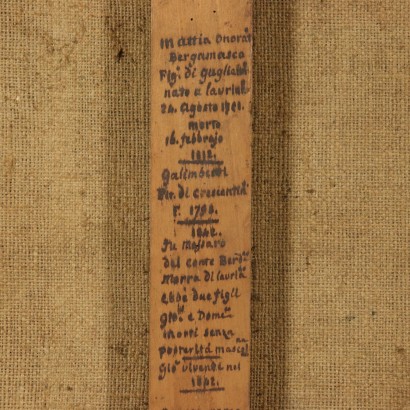 Mattia Onorat
Bergamasco
Fig.º di Gugliel
nato a Laurian
24. Agosto
morto
16. febbrajo
1812.
Galimberti
Fir. di Crescentin
F. 1794.
1842.
Fu Massaro
del conte Berd
Morra di Lauria
ebbe due figli
Gio: e Dom:
morti senza
posterità mascol
Gio: vivendi nel
1802.